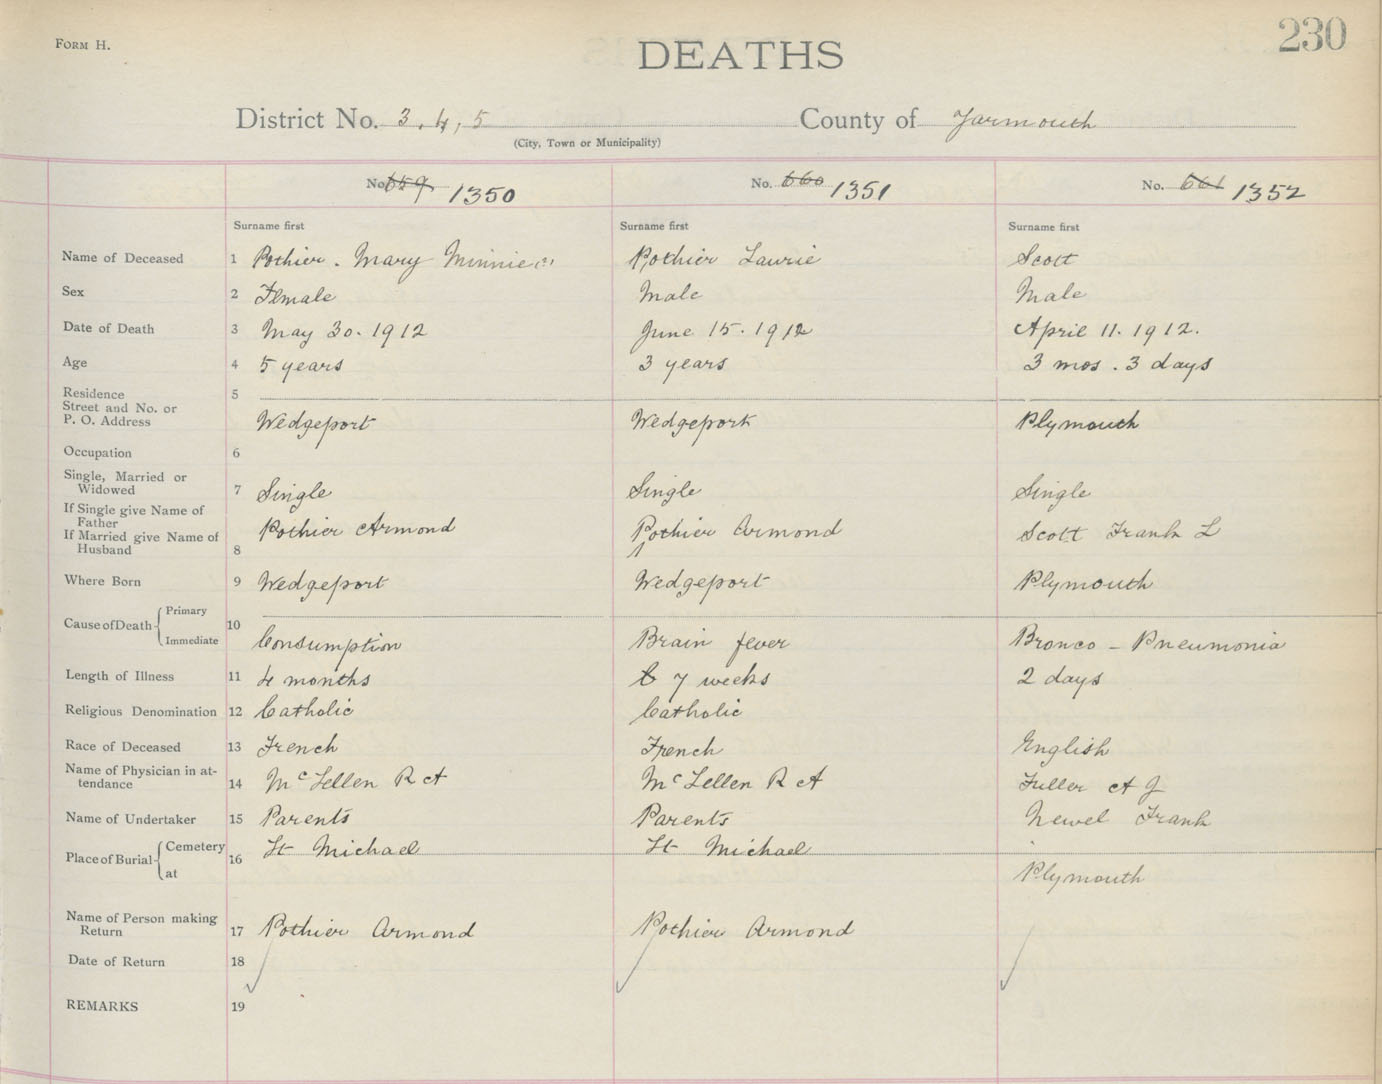 FORM H.
230
DEATHS
District No. 3, 4, 5 County of Yarmouth
(City, Town or Municipality)
No. 659 1350 No. 660 1351 No. 661 1352
Surname first Surname first Surname first
Name of Deceased 1 Pothier. Mary Minnie Pothier Lawrie Scott
Sex 2 Female Male Male
Date of Death 3 May 30. 1912 June 15. 1912 April 11. 1912.
Age 4 5 years 3 years 3 mos. 3 days
Residence 5
Street and No. or
P. O. Address Wedgeport Wedgeport Plymouth
Occupation 6
Single, Married or
Widowed 7 Single Single Single
If Single give Name of
Father Pothier Armond Pothier Armond Scott Frank L
If Married give Name of
Husband 8
Where Born 9 Wedgeport Wedgeport Plymouth
Cause of Death Primary 10
Immediate Consumption Brain fever Bronco - Pneumonia
Length of Illness 11 4 months 7 weeks 2 days
Religious Denomination 12 Catholic Catholic
Race of Deceased 13 French French English
Name of Physician in at-
tendance 14 McLellen R A McLellen R A Fuller A J
Name of Undertaker 15 Parents Parents Newel Frank
Place of Burial Cemetery 16 St Michael St Michael
at Plymouth
Name of Person making
Return 17 Pothier Armond Pothier Armond
Date of Return 18
REMARKS 19